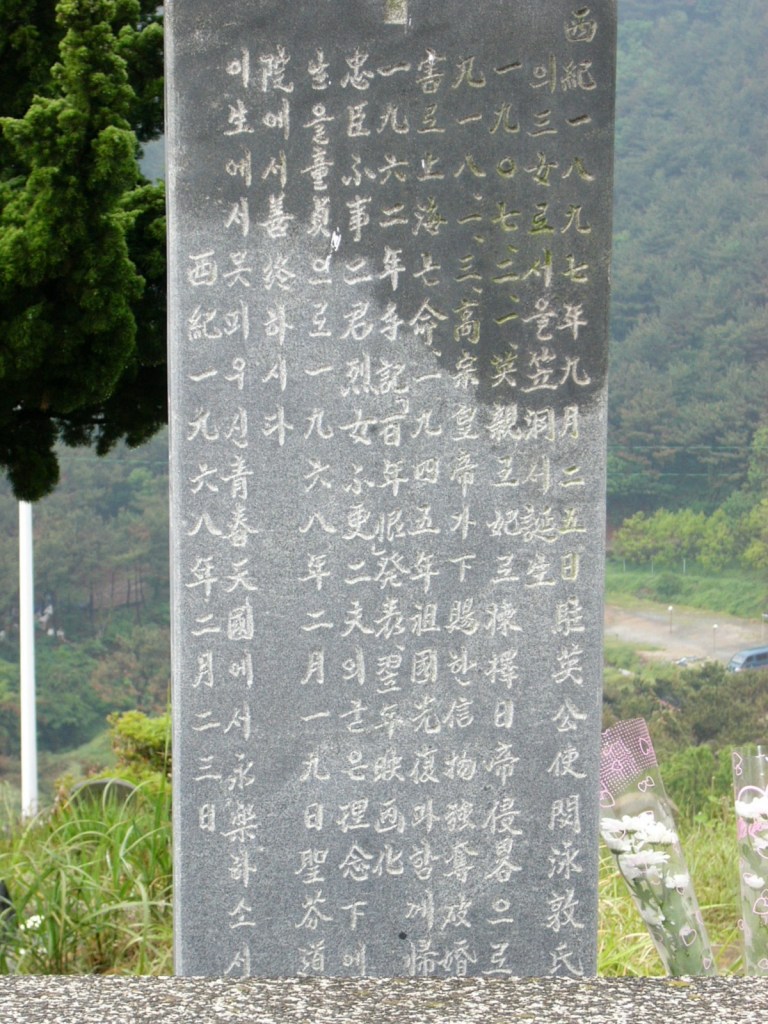 西紀一八九七年九月二五日駐英公使閔泳敦氏
의三女로서울笠洞서誕生
一九〇七、三、一、英親王妃로揀擇日帝侵畧으로
九一八、一、三、高宗皇帝가下賜한信物强奪破婚
害로上海亡命、一九四五年祖國光復과함께歸
一九六二年手記「百年恨」發表、翌年映画化
忠臣不事二君烈女不更二夫의굳은理念下에
生을童貞으로一九六八年二月一九日聖芬道
院에서善終하시다
이生에서못피우신青春天國에서永樂하소서
西紀一九六八年二月二三日